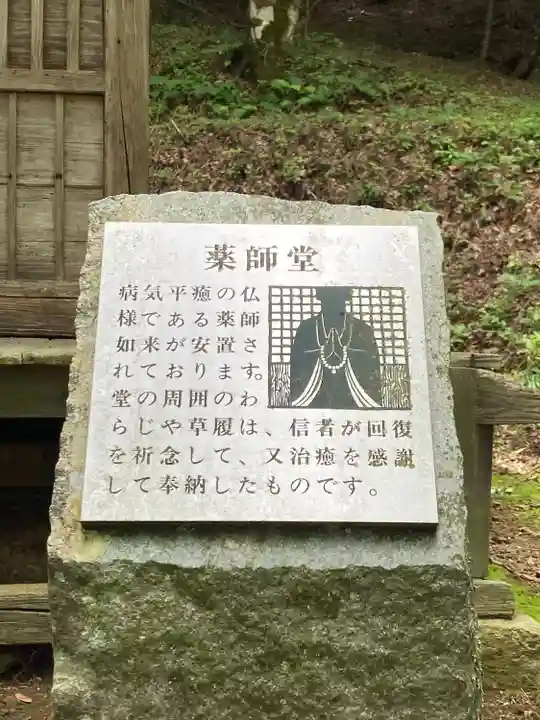 薬師堂
病気平癒の仏
様である薬師
如来が安置さ
れております。
堂の周囲のわ
らじや草履は、信者が回復
を祈念して、又治癒を感謝
して奉納したものです。